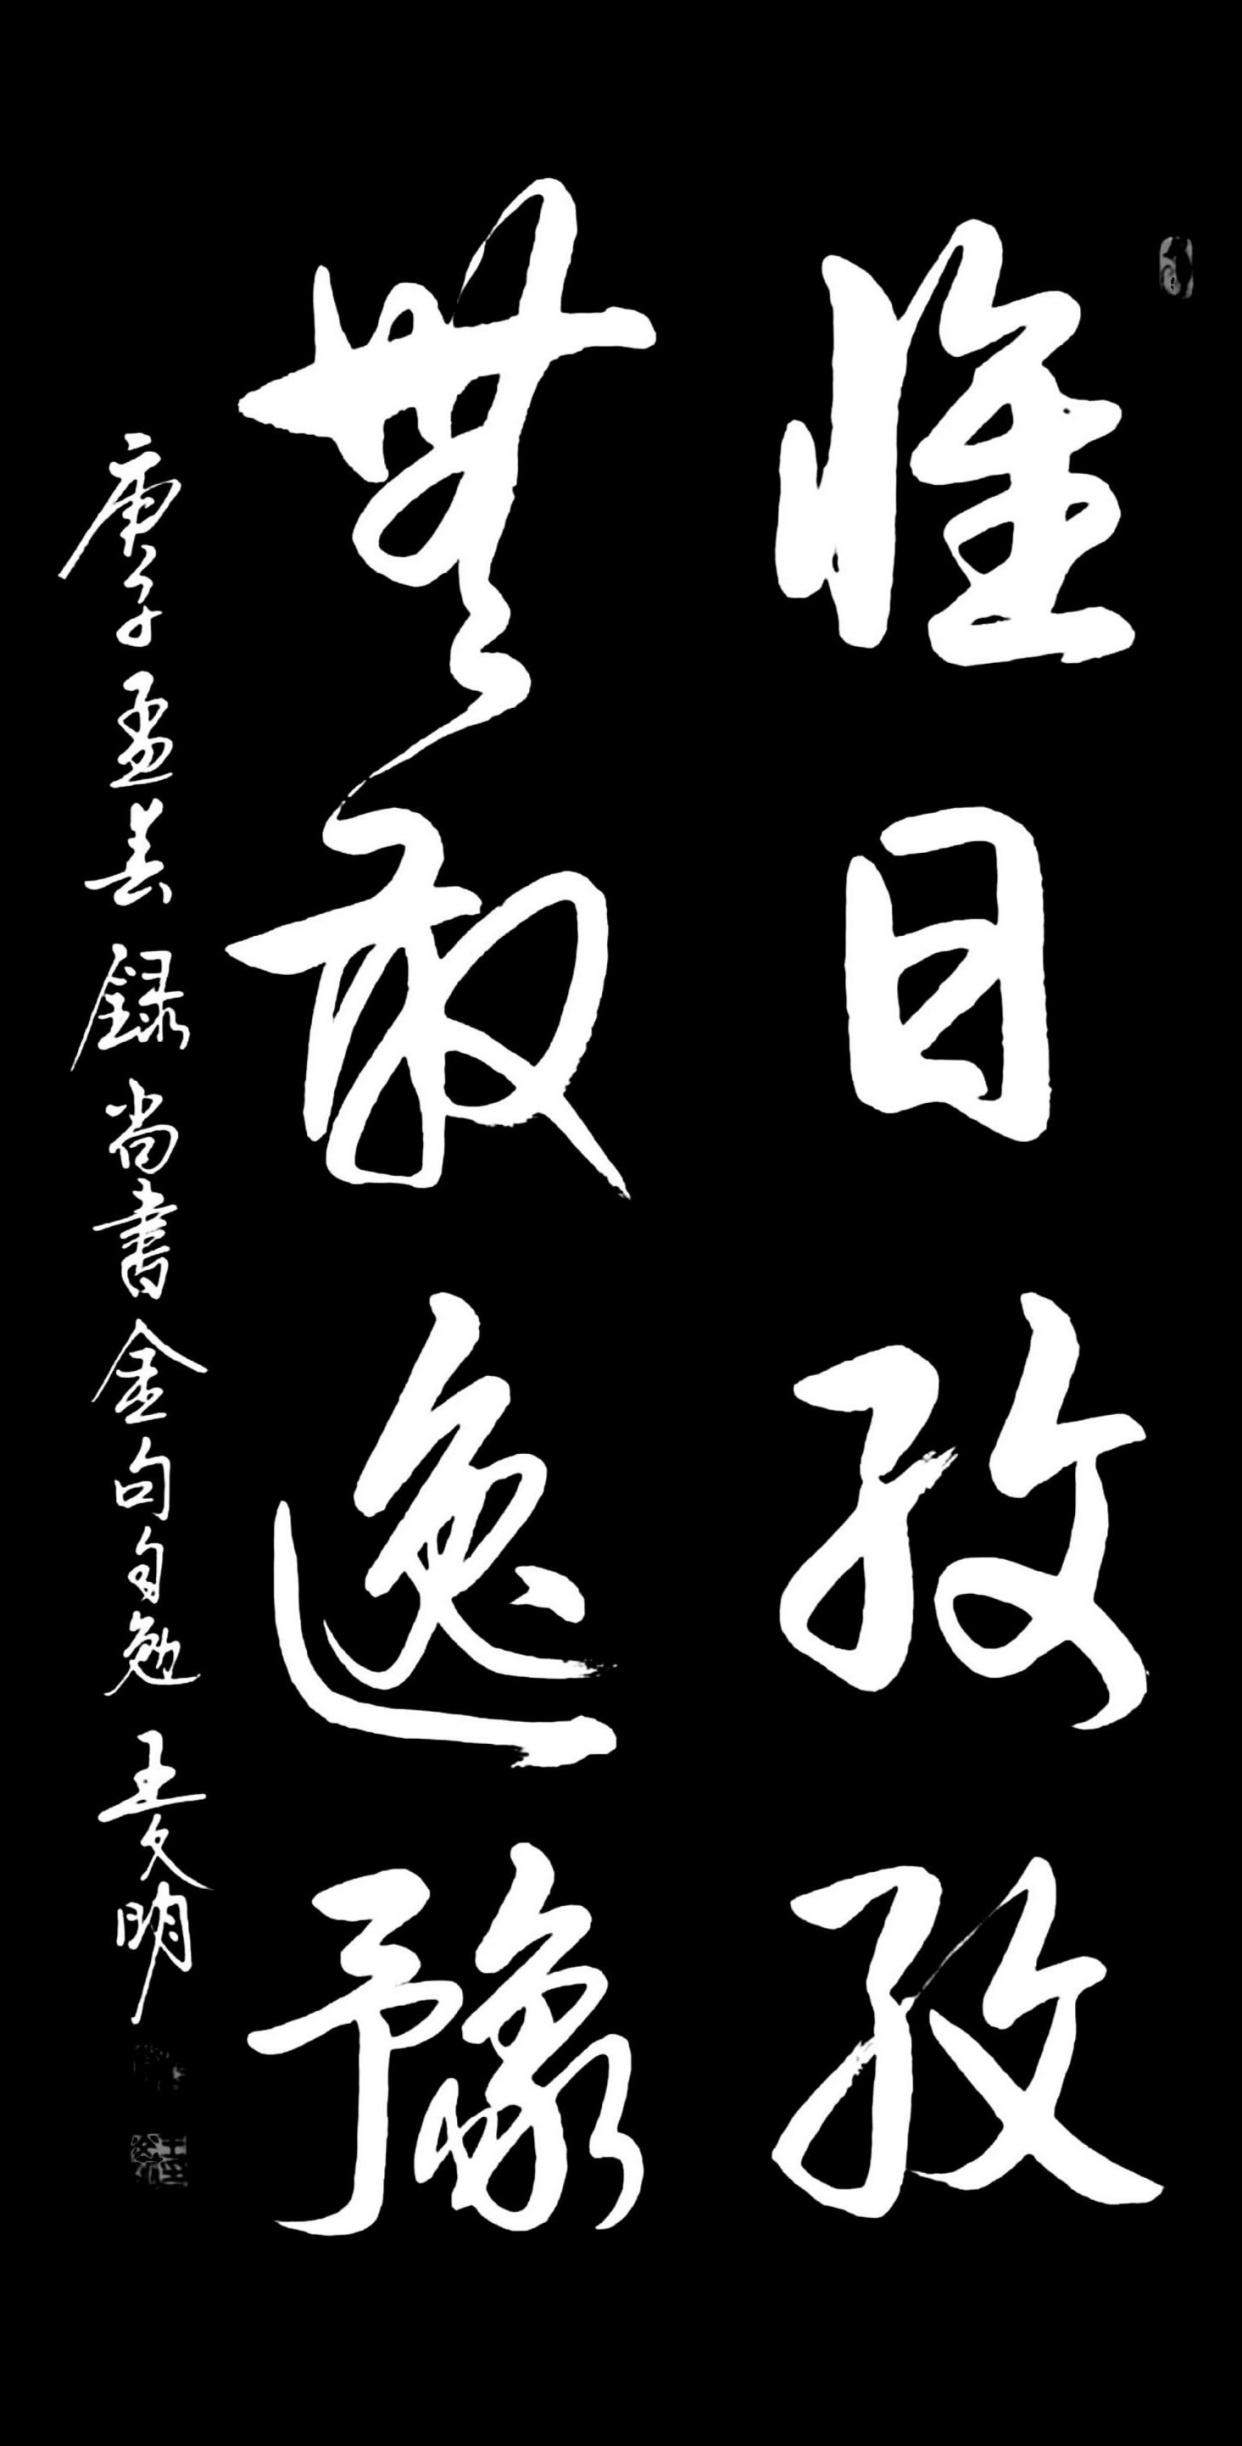 惟日孜孜
無敢逸豫
庚子孟春錄尚書金句自勉王文明